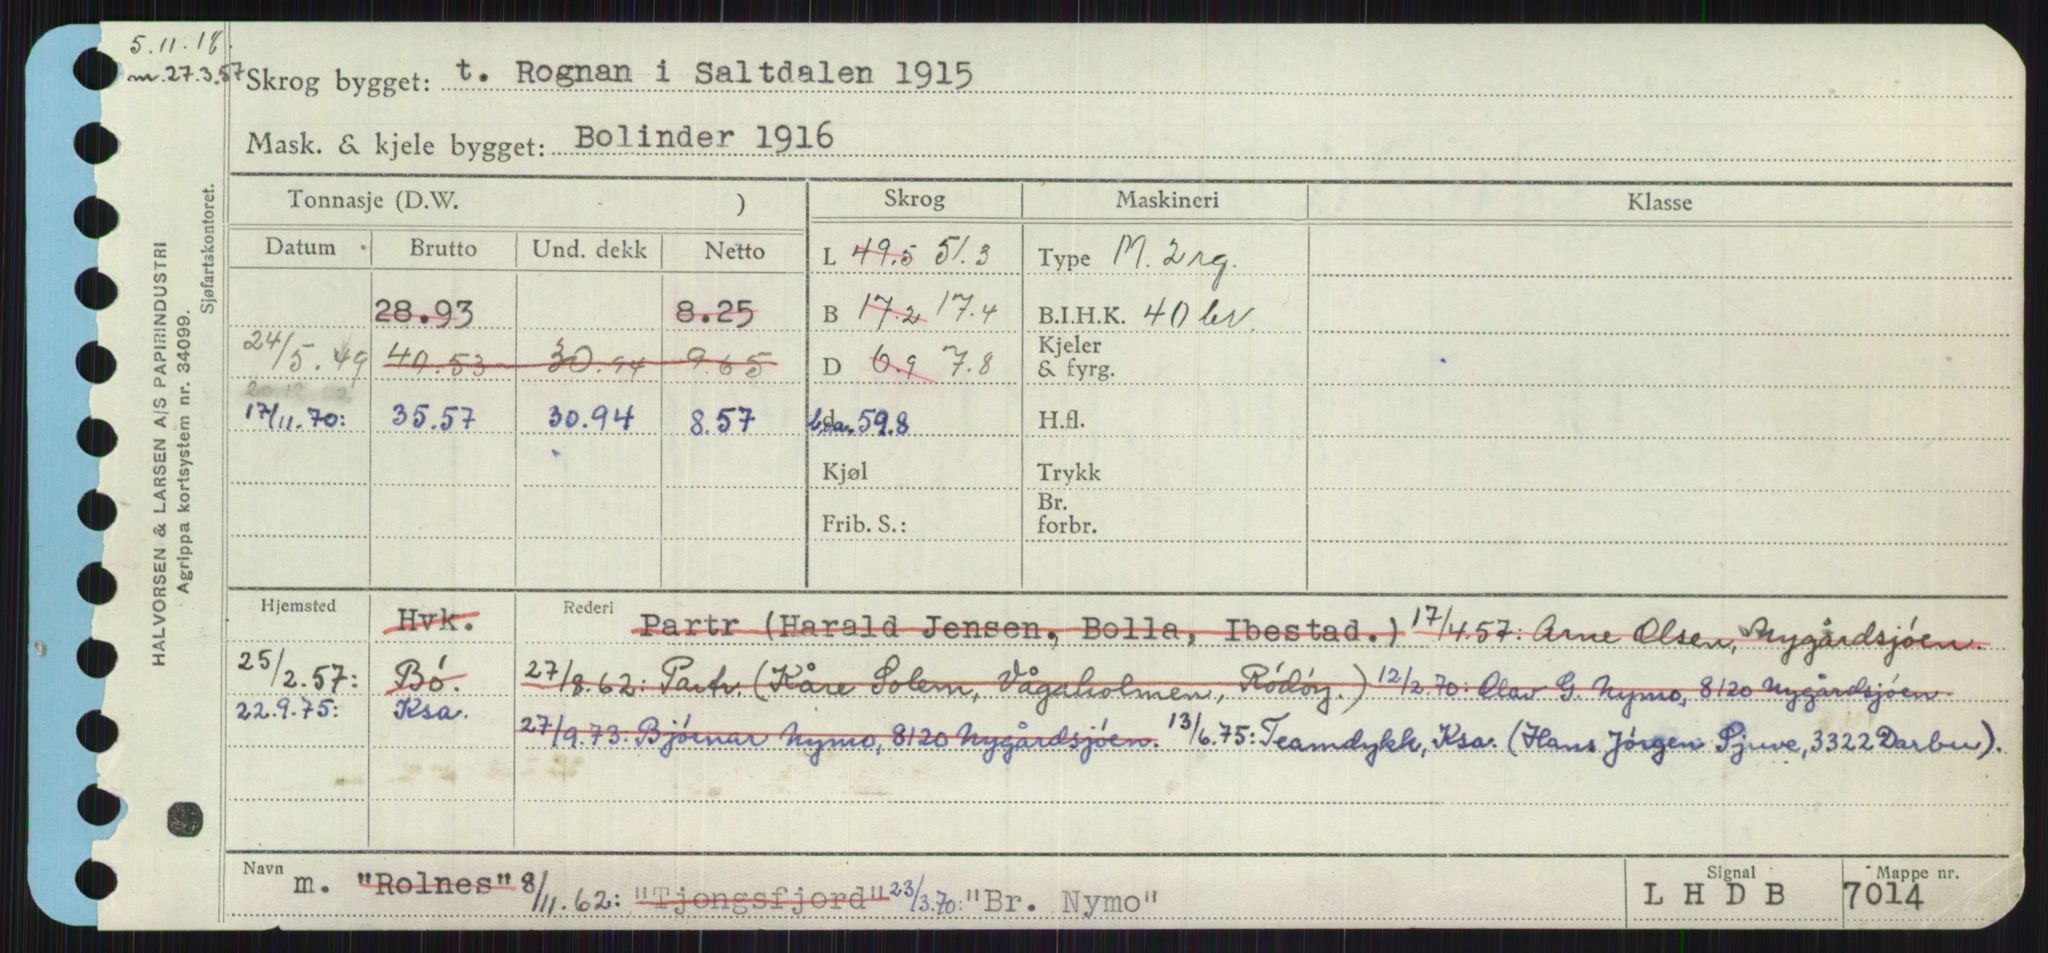 5.11.18.
m. 27.3.57
Skrog bygget: t. Rognan i Saltdalen 1915
Mask. & kjele bygget: Bolinder 1916
HALVORSEN & LARSEN A/S PAPIRINDUSTRI
Agrippa kortsystem nr. 34099.
Sjøfartskontoret.
Tonnasje (D.W. ) Skrog Maskineri Klasse
Datum Brutto Und. dekk Netto L 49.5 51.3 Type M. 2 rg.
28.93 8.25 B 17.2 17.4 B.I.H.K. 40 bv.
24/5.49 40.53 30.94 9.65 D 6.9 7.8 Kjeler & fyrg.
17/11.70: 35.57 30.94 8.57 59.8 H.fl.
Kjøl Trykk
Frib. S.: Br. forbr.
Hjemsted Hvk. Rederi Partr (Harald Jensen, Bolla, Ibestad.) 17/4.57: Arne Olsen, Nygårdsjöen.
25/2.57: Bö. 27/8.62: Partr. (Kåre Solem, Vågaholmen, Rödöy.) 12/2.70: Olav G. Nymo, 8120 Nygårdsjöen.
22.9.75: Ksa. 27/9.73: Björnar Nymo, 8120 Nygårdsjöen. 13/6.75: Teamdykk, Ksa. (Hans Jörgen Sjuve, 3322 Darbu).
Navn m. "Rolnes" 8/11.62: "Tjongsfjord" 23/3.70: "Br. Nymo" Signal L H D B Mappe nr. 7014